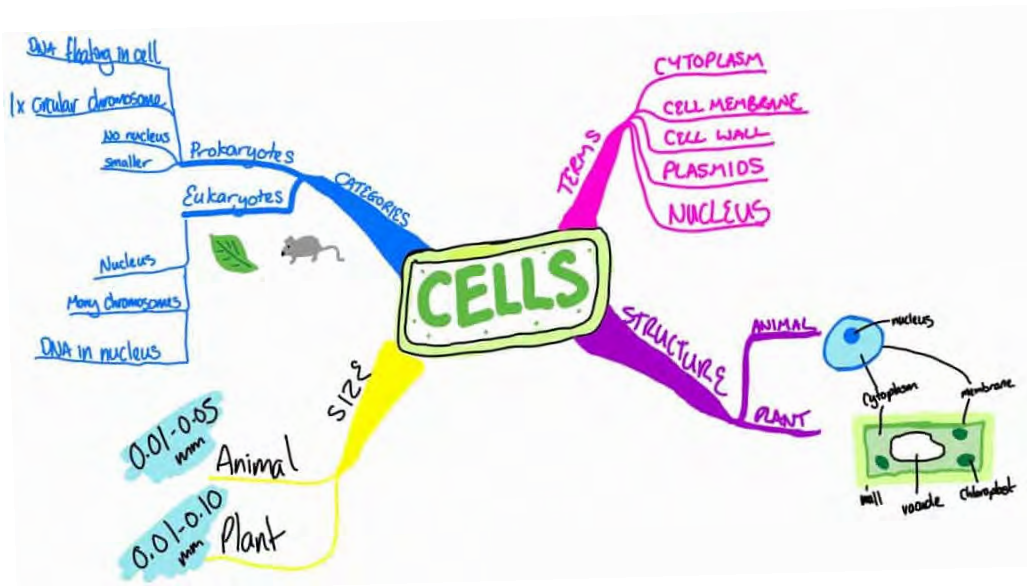 CELLS
CATEGORIES
Prokaryotes
DNA floating in cell
1x circular chromosome
No nucleus
smaller
Eukaryotes
Nucleus
Many chromosomes
DNA in nucleus
TERMS
CYTOPLASM
CELL MEMBRANE
CELL WALL
PLASMIDS
NUCLEUS
STRUCTURE
ANIMAL
nucleus
Cytoplasm
membrane
PLANT
wall
vacuole
chloroplast
SIZE
Animal
0.01-0.05
mm
Plant
0.01-0.10
mm